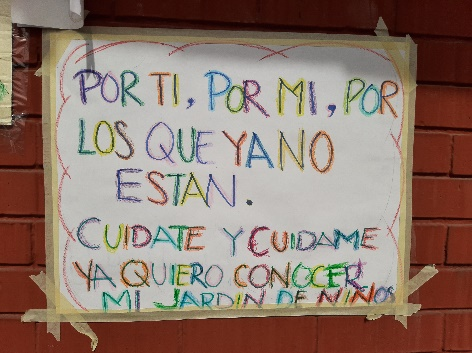 POR TI, POR MI, POR
LOS QUE YA NO
ESTAN.
CUIDATE Y CUIDAME
YA QUIERO CONOCER
MI JARDIN DE NIÑOS